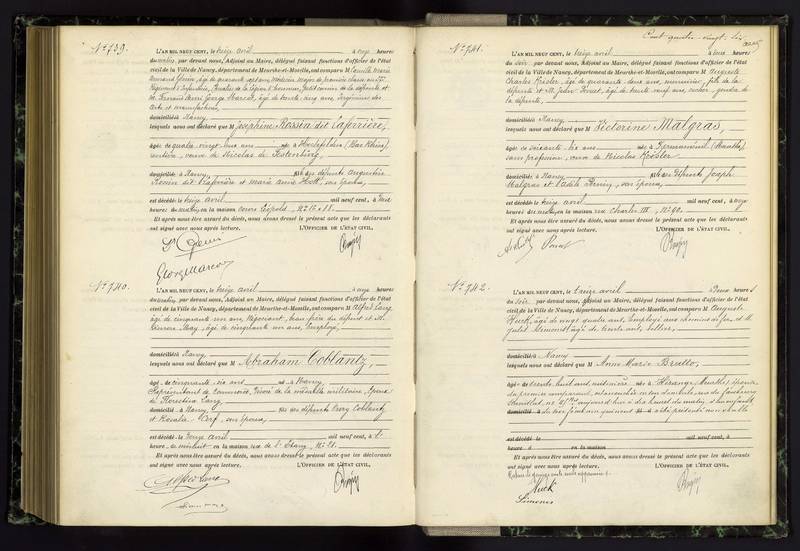 N° 739.
L'AN MIL NEUF CENT, le treize avril à onze heures
du matin, par devant nous, Adjoint au Maire, délégué faisant fonctions d'officier de l'état
civil de la Ville de Nancy, département de Meurthe-et-Moselle, ont comparu M Camille Marie
âgé de quarante sept ans, Médecin Major de première classe au
Régiment d'Infanterie, Chevalier de la Légion d'honneur, petit cousin de la défunte et
M. Fernand Henri George Marcot, âgé de trente cinq ans, Ingénieur des
Arts et manufactures,
domiciliés à Nancy
lesquels nous ont déclaré que M Joséphine Rossin dit Laferrière,
âgée de quatre-vingt-deux ans née à (Bas Rhin)
rentière, veuve de Nicolas de
domiciliée à Nancy, fille des défunts Augustin
Rossin dit Laferrière et Marie Anne son épouse,
est décédée le treize avril mil neuf cent, à
heures du matin en la maison cours Léopold, N°
Et après nous être assuré du décès, nous avons dressé le présent acte que les déclarants
ont signé avec nous après lecture. L'OFFICIER DE L'ÉTAT CIVIL,
George Marcot
N° 740.
L'AN MIL NEUF CENT, le treize avril à onze heures
du matin, par devant nous, Adjoint au Maire, délégué faisant fonctions d'officier de l'état
civil de la Ville de Nancy, département de Meurthe-et-Moselle, ont comparu M Alfred Lang
âgé de cinquante un ans, Négociant, beau-frère du défunt et M.
May, âgé de cinquante un ans, Employé,
domiciliés à Nancy
lesquels nous ont déclaré que M Abraham Coblantz,
âgé de cinquante six ans né à Nancy
Représentant de Commerce, Décoré de la médaille militaire, Epoux
de Florestine Lang
domicilié à Nancy, fils des défunts Coblantz
et Rosalie Cerf, son épouse,
est décédé le treize avril mil neuf cent, à l'
heure de minuit en la maison rue de l'Etang, N° 21.
Et après nous être assuré du décès, nous avons dressé le présent acte que les déclarants
ont signé avec nous après lecture. L'OFFICIER DE L'ÉTAT CIVIL,
Alfred Lang
Cent quatre-vingt six
N° 741.
L'AN MIL NEUF CENT, le treize avril à deux heures
du soir, par devant nous, Adjoint au Maire, délégué faisant fonctions d'officier de l'état
civil de la Ville de Nancy, département de Meurthe-et-Moselle, ont comparu M Auguste
Charles Késler, âgé de quarante deux ans, menuisier, fils de la
défunte et M. Jules Poncet, âgé de trente neuf ans, cocher, gendre de
la défunte,
domiciliés à Nancy
lesquels nous ont déclaré que M Victorine Malgras,
âgée de soixante six ans née à (Meurthe)
sans profession, veuve de Nicolas Késler
domiciliée à Nancy fille des défunts Joseph
Malgras et son épouse,
est décédée le treize avril mil neuf cent, à onze
heures du matin en la maison rue Charles III, N° 90.
Et après nous être assuré du décès, nous avons dressé le présent acte que les déclarants
ont signé avec nous après lecture. L'OFFICIER DE L'ÉTAT CIVIL,
Poncet
N° 742.
L'AN MIL NEUF CENT, le treize avril à Deux heures
du soir, par devant nous, Adjoint au Maire, délégué faisant fonctions d'officier de l'état
civil de la Ville de Nancy, département de Meurthe-et-Moselle, ont comparu M Auguste
Huck, âgé de vingt quatre ans, Employé aux chemins de fer, et M.
Jules Simonet, âgé de trente ans, sellier,
domiciliés à Nancy
lesquels nous ont déclaré que M Anne Marie Brullo,
âgée de trente huit ans née à (Meurthe), épouse
du premier comparant, est accouchée en son domicile, rue du faubourg
Stanislas, aujourd'hui à dix heures du matin, d'un enfant
du sexe féminin qui nous a été présenté sans vie
est décédé le mil neuf cent, à
heure à en la maison
Et après nous être assuré du décès, nous avons dressé le présent acte que les déclarants
ont signé avec nous après lecture. L'OFFICIER DE L'ÉTAT CIVIL,
Huck
Simonet